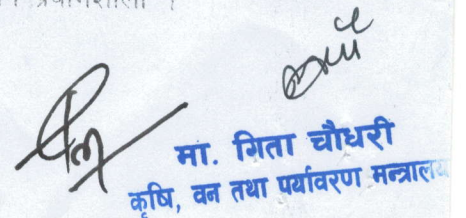 प्रयोगशाला ।
मा. गिता चौधरी
कृषि, वन तथा पर्यावरण मन्त्रालय